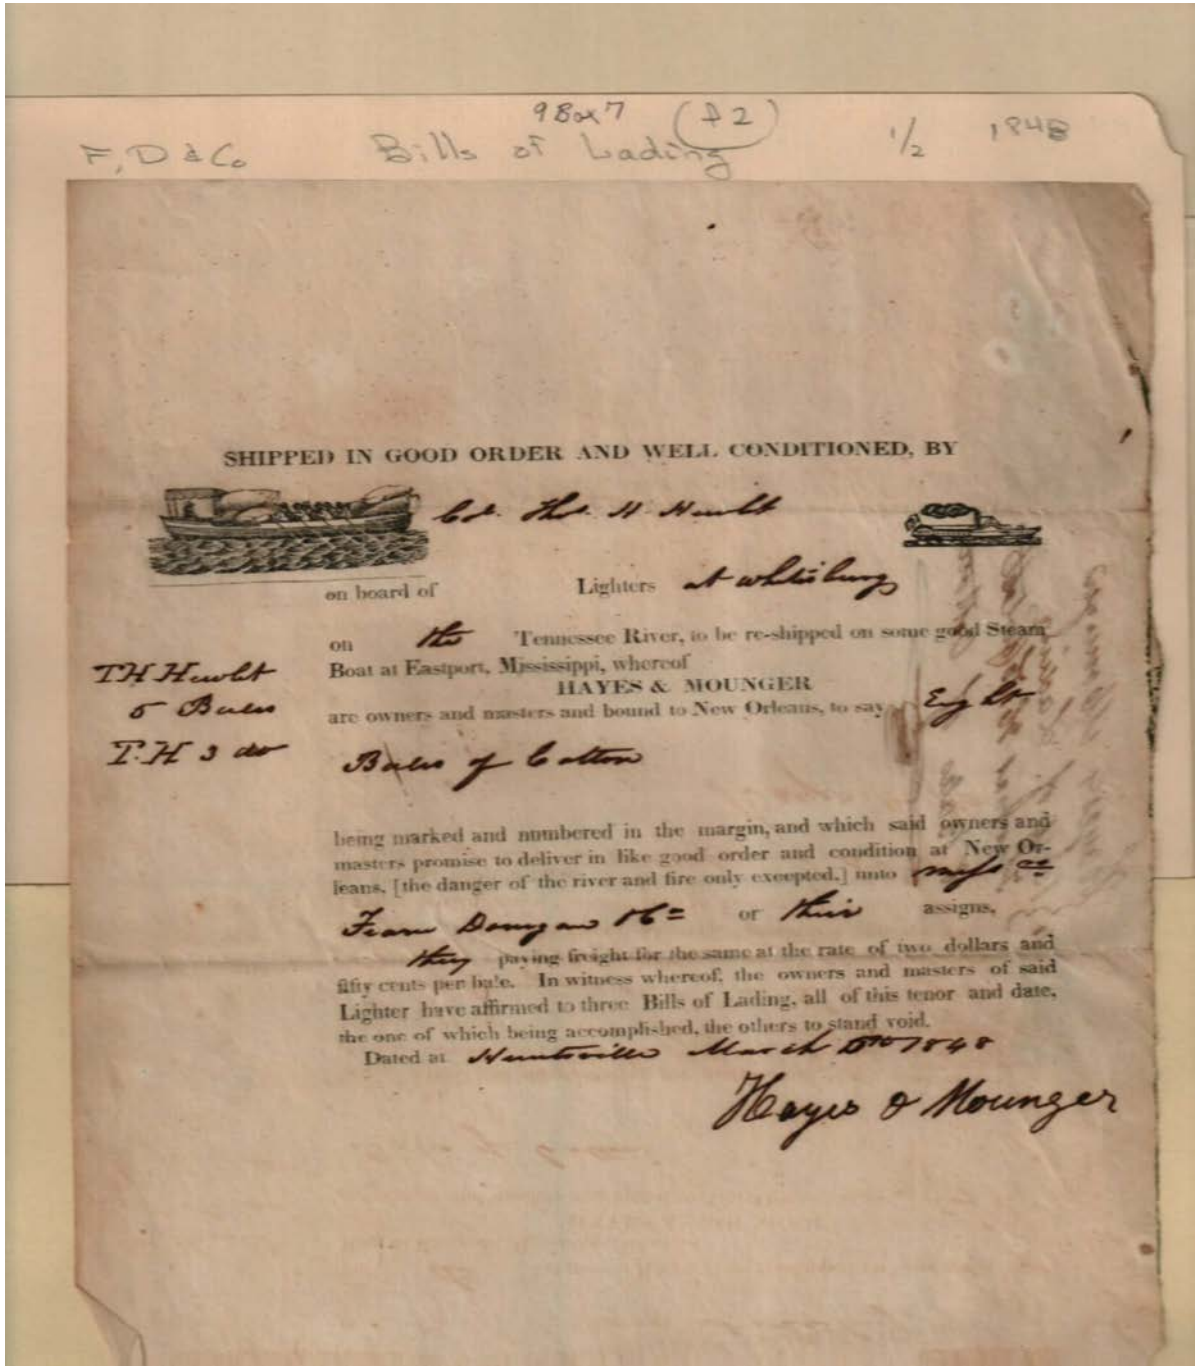 9 Box 7 (f2)
F, D & Co Bills of Lading 1/2 1848
SHIPPED IN GOOD ORDER AND WELL CONDITIONED, BY
Col. Thos. H
on board of Lighters at whitesburg
on the Tennessee River, to be re-shipped on some good Steam
Boat at Eastport, Mississippi, whereof
HAYES & MOUNGER
are owners and masters and bound to New Orleans, to say Eight
T H
5 Bales
T. H 3 do
Bales of Cotton
being marked and numbered in the margin, and which said owners and
masters promise to deliver in like good order and condition at New Or-
leans, [the danger of the river and fire only excepted,] unto
or their assigns,
they paying freight for the same at the rate of two dollars and
fifty cents per bale. In witness whereof, the owners and masters of said
Lighter have affirmed to three Bills of Lading, all of this tenor and date,
the one of which being accomplished, the others to stand void.
Dated at Huntsville March 1848
Hayes & Mounger